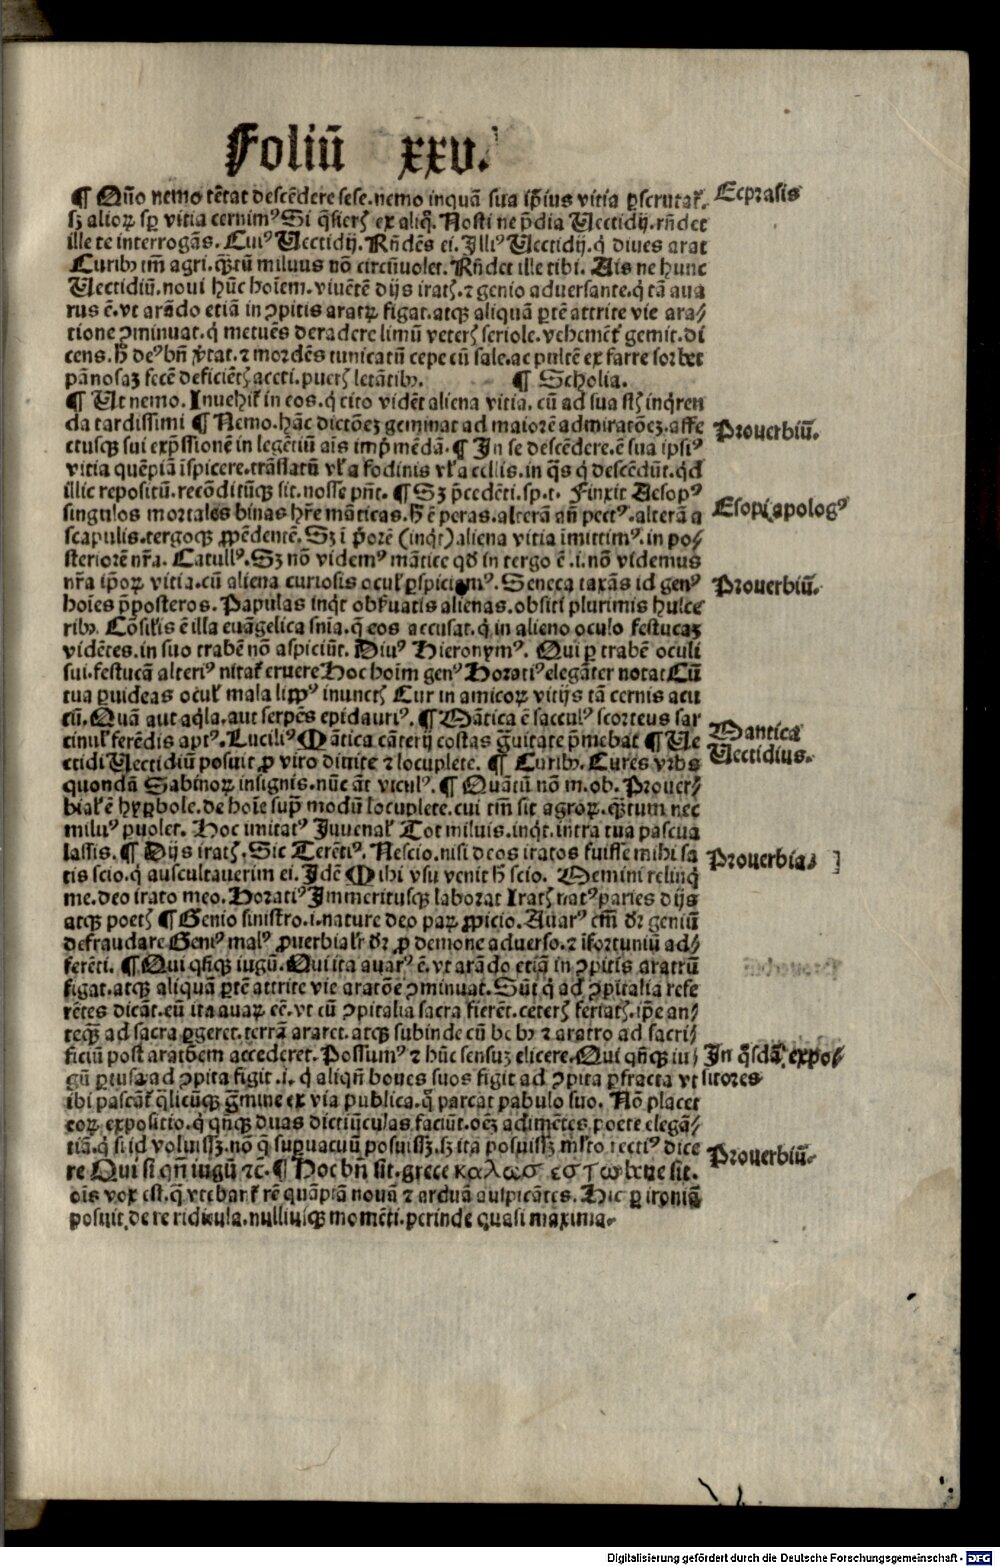 Foliū xxv.
¶ Qūo nemo tētat descēdere sese. nemo inquā sua ip̄ius vitia ꝑscrutaꝉ. Ecprasis
sꝫ alioꝝ sꝑ vitia cernimꝰ Si q̄sierꝭ ex aliq̄. Nosti ne p̄dia Vectidij. rn̄det
ille te interrogās. Cuiꝰ Vectidij. Rn̄dēs ei. Illiꝰ Vectidij. q̇ dives arat
Curibꝫ tm̄ agri. q̄ꝫtū miluus nō circūuolet. Rn̄det ille tibi. Ais ne hunc
Vectidiū. noui hūc hoīem. viuētē dijs iratꝭ. ⁊ genio adversante. q̇ tā aua
rus ē. vt arādo etiā in ꝯpitis aratꝝ figat. atqꝫ aliquā ꝑtē attrite vie ara⸗
tione ꝯminuat. q̇ metuēs deradere limū veterꝭ seriole. vehemēꝉ gemit. di
cens. H̄ deꝰ bn̄ v̄tat. ⁊ mordēs tunicatū cepe cū sale. ac pultē ex farre sorbet
pānosaꝫ fecē deficiētꝭ aceti. puerꝭ letātibꝫ. ¶ Scholia.
¶ Ut nemo. Inuehiꝉ in eos. q̇ cito vidēt aliena vitia. cū ad sua sꝭ inq̇ren
da tardissimi ¶ Nemo. hāc dictōeꝫ geminat ad maiorē admiratōeꝫ. affe
ctusqꝫ sui exp̄ssionē in legētiū aīs imp̄mēdā. ¶ In se descēdere. ē sua ipsiꝰ Prouerbiū.
vitia quēpiā īspicere. trāslatū vꝉ a fodinis vꝉ a cellis. in q̄s q̇ descēdūt. q̇d
illic repositū. recōditūqꝫ sit. nosse pn̄t. ¶ Sꝫ p̄cedēti. sp. t. Finxit Aesopꝰ
singulos mortales binas hr̄e māticas. h̄ ē peras. alterā an̄ pectꝰ. alterā a Esopi apologꝰ
scapulis. tergoqꝫ ꝓpēdentē. Sꝫ ī p̄orē (inq̇t) aliena vitia imittimꝰ. in po⸗
steriorē nr̄a. Catullꝰ. Sꝫ nō videmꝰ mātice qd̄ in tergo ē .i. nō videmus
nr̄a ip̄oꝝ vitia. cū aliena curiosis oculꝭ ꝑspicimꝰ. Seneca taxās id genꝰ Prouerbiū.
hoīes p̄posteros. Papulas inq̇t obẜuatis alienas. obsiti plurimis hulce
ribꝫ. Cōsiꝉis ē illa euāgelica snīa. q̄ eos accusat. q̇ in alieno oculo festucaꝫ
vidētes. in suo trabē nō aspiciūt. Diuꝰ Hieronymꝰ. Qui ꝑ trabē oculi
sui. festucā alteriꝰ nitaꝉ eruere Hoc hoīm genꝰ Horatiꝰ elegāter notat Cū
tua ꝑuideas oculꝭ mala lipꝑꝰ inunctꝭ Cur in amicoꝝ vitijs tā cernis acu
tū. Quā aut aq̇la. aut serpēs epidauriꝰ. ¶ Mātica ē sacculꝰ scorteus sar Mantica
cinulꝭ ferēdis aptꝰ. Luciliꝰ Mātica cāterij costas g̈uitate p̄mebat ¶ Ve Vectidius.
ctidi Vectidiū posuit ꝓ viro diuite ⁊ locuplete. ¶ Curibꝫ. Cures vrbs
quondā Sabinoꝝ insignis. nūc āt viculꝰ. ¶ Quātū nō m. ob. Prouer⸗
biaꝉ ē hyꝑbole. de hoīe sup̄ modū locuplete. cui tm̄ sit agroꝝ. q̄ꝫtum nec
miluꝰ ꝑuolet. Hoc imitatꝰ Juuenaꝉ Tot miluis. inq̇t. intra tua pascua
lassis. ¶ Dijs iratꝭ. Sic Terētiꝰ. Nescio. nisi deos iratos fuisse mihi sa Prouerbia
tis scio. q̇ auscultauerim ei. Idē Mihi vsu venit h̄ scio. Memini relinq̇
me. deo irato meo. Horatiꝰ Immeritusqꝫ laborat Iratꝭ natꝰ paries dijs
atqꝫ poetꝭ ¶ Genio sinistro. i. nature deo paꝝ ꝓpicio. Auarꝰ em̄ dr̄ geniū
defraudare Geniꝰ malꝰ ꝓuerbialꝉ dr̄ ꝓ demone adverso. ⁊ īfortuniū ad⸗
ferēti. ¶ Qui qn̄qꝫ iugū. Qui ita auarꝰ ē. vt arādo etiā in ꝯpitis aratrū
figat. atqꝫ aliquā ꝑtē attrite vie aratōe ꝯminuat. Sūt q̇ ad ꝯpitalia refe
rētes dicāt. eū ita auaꝝ eē. vt cū ꝯpitalia sacra fierēt. ceterꝭ feriatꝭ. ip̄e an⸗
teqꝫ̄ ad sacra ꝑgeret. terrā araret. atqꝫ subinde cū bobꝫ ⁊ aratro ad sacri⸗
ficiū post aratōem accederet. Possumꝰ ⁊ hūc sensuꝫ elicere. Qui qn̄qꝫ iu⸗ In q̇sdā expo⸗
gū ꝑtusa ad ꝯpita figit. i. q̇ aliqn̄ boues suos figit ad ꝯpita ꝑfracta vt sitores
ibi pascāꝉ q̇licūqꝫ g̈mine ex via publica. q̄ parcat pabulo suo. Nō placet
eoꝝ expositio. q̇ qn̄qꝫ duas dictiūculas faciūt. oēꝫ adimētes poete elegā⸗
tiā. q̇ si id voluissꝫ. nō q̄ suꝑuacuū posuissꝫ. sꝫ ita posuissꝫ ml̄to rectiꝰ dice
re Qui si qn̄ iugū ⁊c. ¶ Hoc bn̄ sit. grece καλως εστω bene sit. Prouerbiū
oīs vox est. q̄ vtebanꝉ rē quāpiā nouā ⁊ arduā auspicātes. Hic ꝑ ironiaꝫ
posuit. de re ridicula. nulliusqꝫ momēti. perinde quasi maxima.
Digitalisierung gefördert durch die Deutsche Forschungsgemeinschaft - DFG